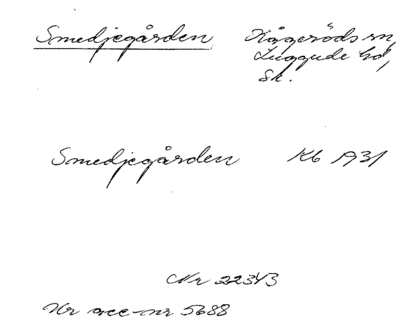 Smedjegården Häggeröds sn,
Luggude hd,
Sk.
Smedjegården Kb 1931
Nr 22343
Ur acc-nr 5688